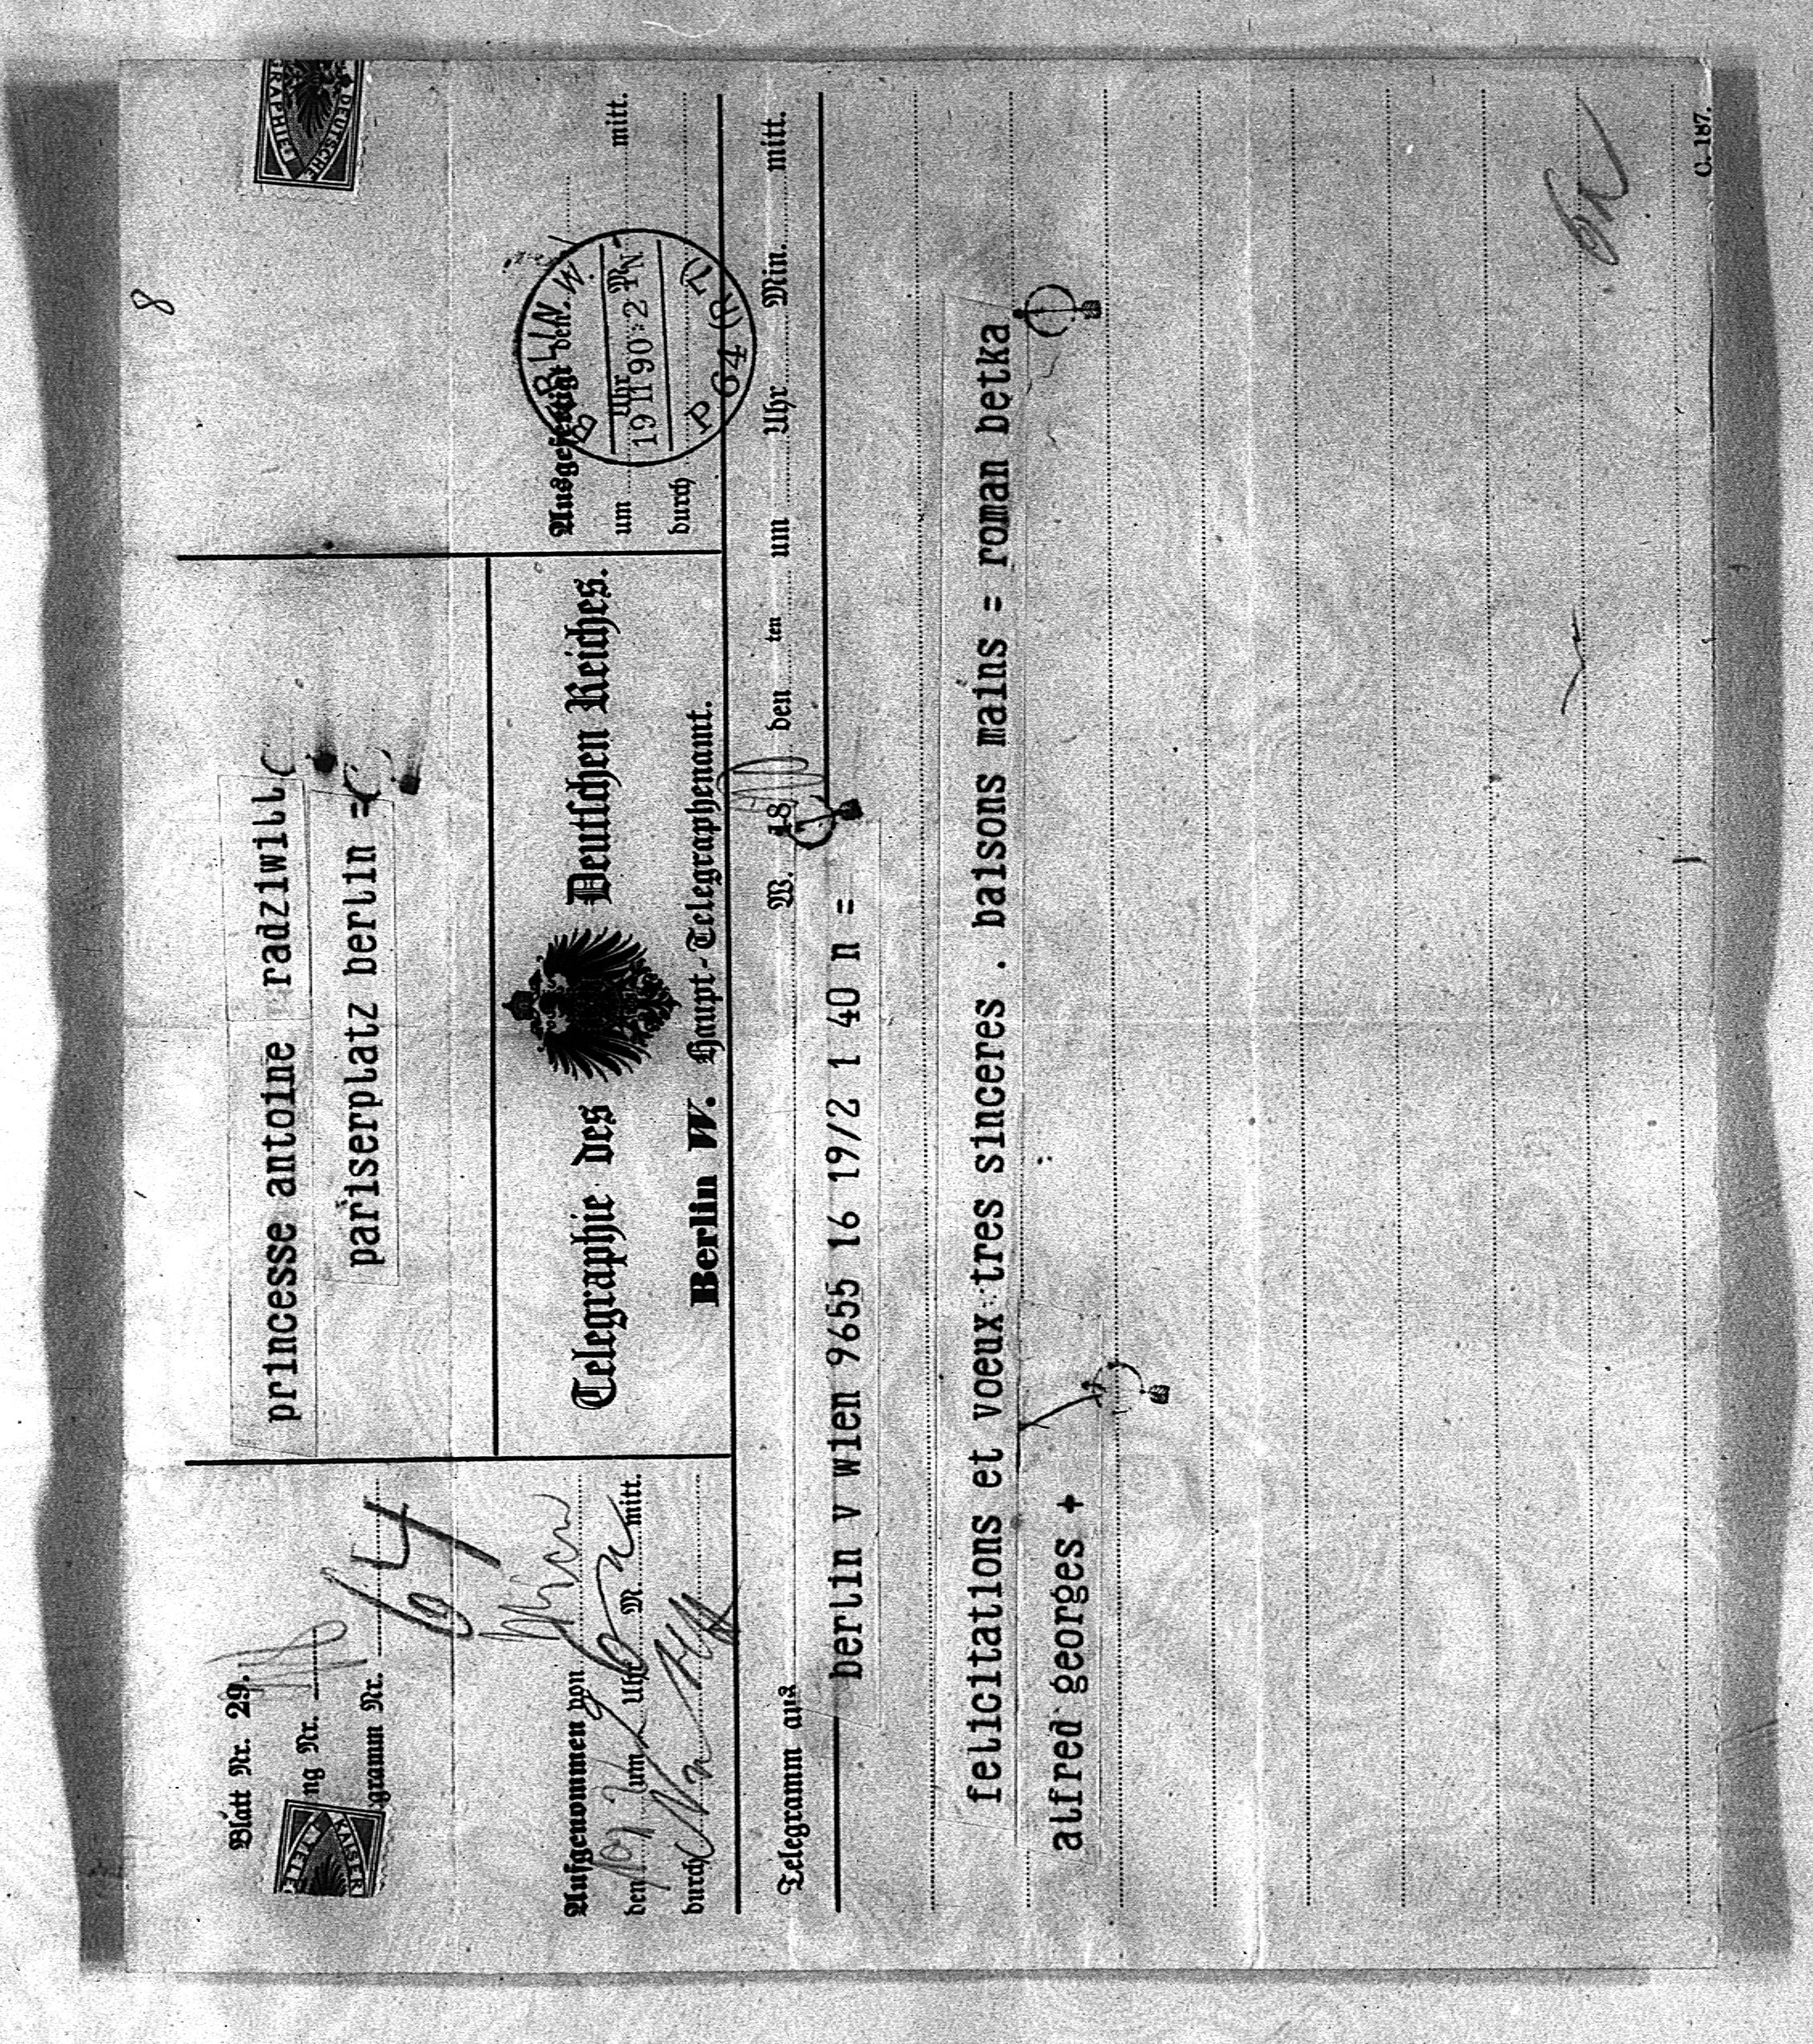 8
Blatt Nr. 29.
ng Nr.
gramm Nr. 64
KAISER
TELE
DEUTSCHE
GRAPHIE
princesse antoine radziwill
pariserplatz berlin =
Aufgenommen von
den 19/2 um Uhr M mitt.
durch
Telegraphie des Deutschen Reiches.
Berlin W. Haupt-Telegraphenamt.
Ausgefertigt den
um Uhr M mitt.
durch
BERLIN. W.
19 II 90 2 N
P 64 (R P)
Telegramm aus W. 18 den ten um Uhr Min. mitt.
berlin v wien 9655 16 19/2 1 40 n =
felicitations et voeux tres sinceres . baisons mains = roman betka
alfred georges +
C. 187.